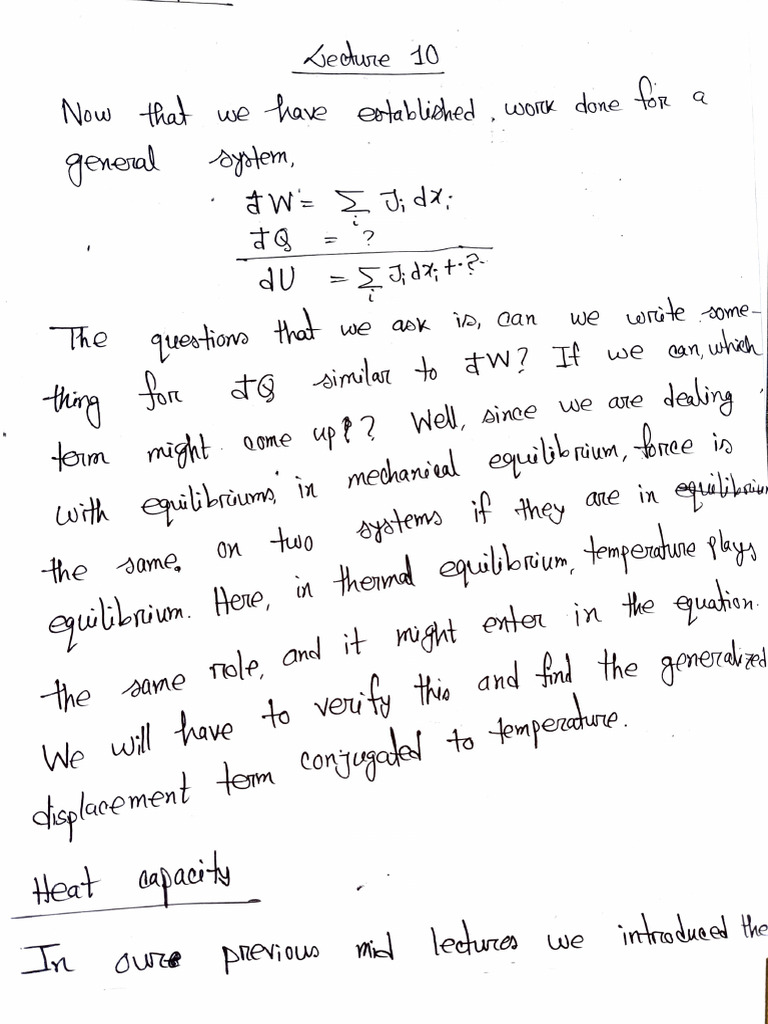 Lecture 10
Now that we have established, work done for a
general system,
đW = ∑_i J_i dx_i
đQ = ?
dU = ∑_i J_i dx_i + ?
The questions that we ask is, can we write some-
thing for đQ similar to đW? If we can, which
term might come up?? Well, since we are dealing
with equilibriums, in mechanical equilibrium, force is
the same on two systems if they are in equilibrium
equilibrium. Here, in thermal equilibrium, temperature plays
the same role, and it might enter in the equation.
We will have to verify this and find the generalized
displacement term conjugated to temperature.
Heat capacity
In our previous mid lectures we introduced the